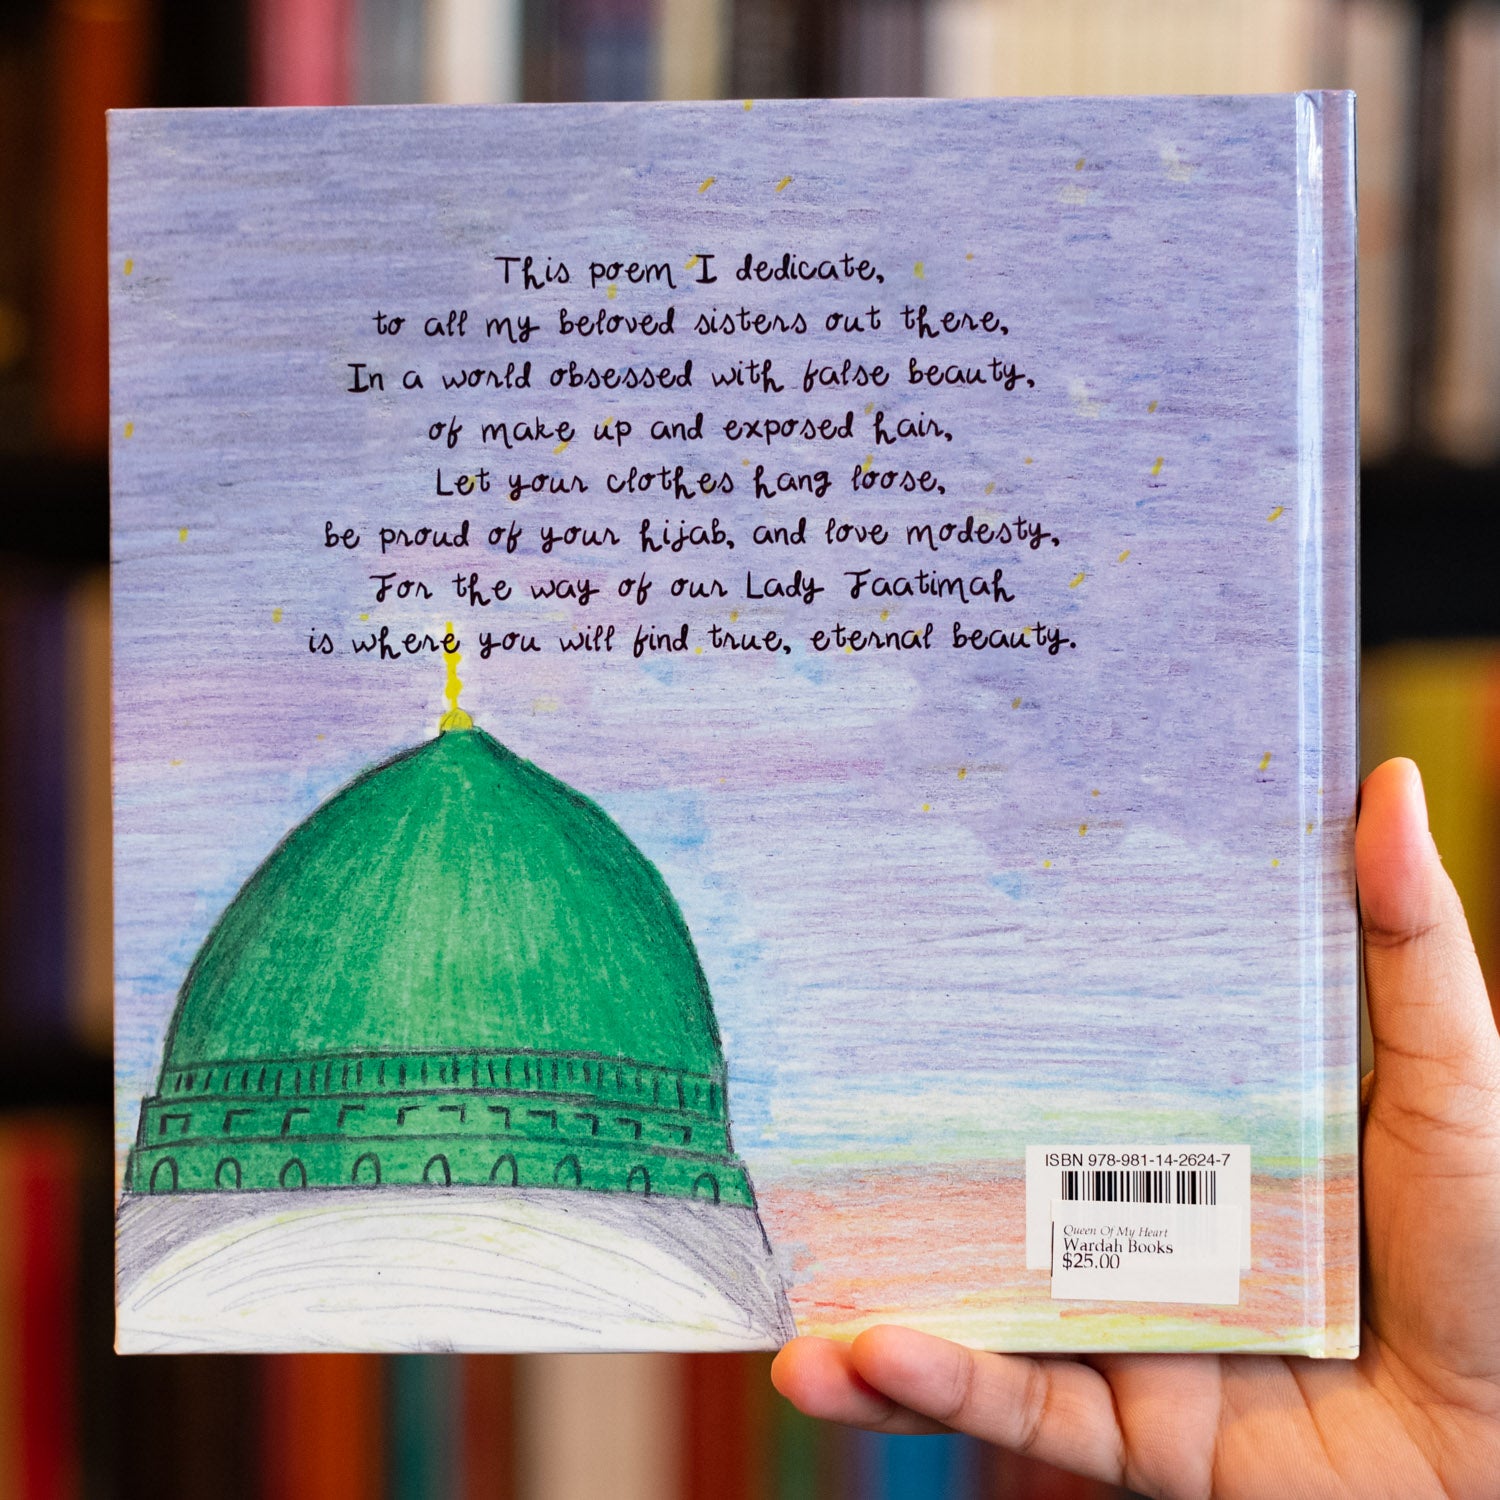 This poem I dedicate,
to all my beloved sisters out there,
In a world obsessed with false beauty,
of make up and exposed hair,
Let your clothes hang loose,
be proud of your hijab, and love modesty,
For the way of our Lady Faatimah
is where you will find true, eternal beauty.
ISBN 978-981-14-2624-7
Queen Of My Heart
Wardah Books
$25.00